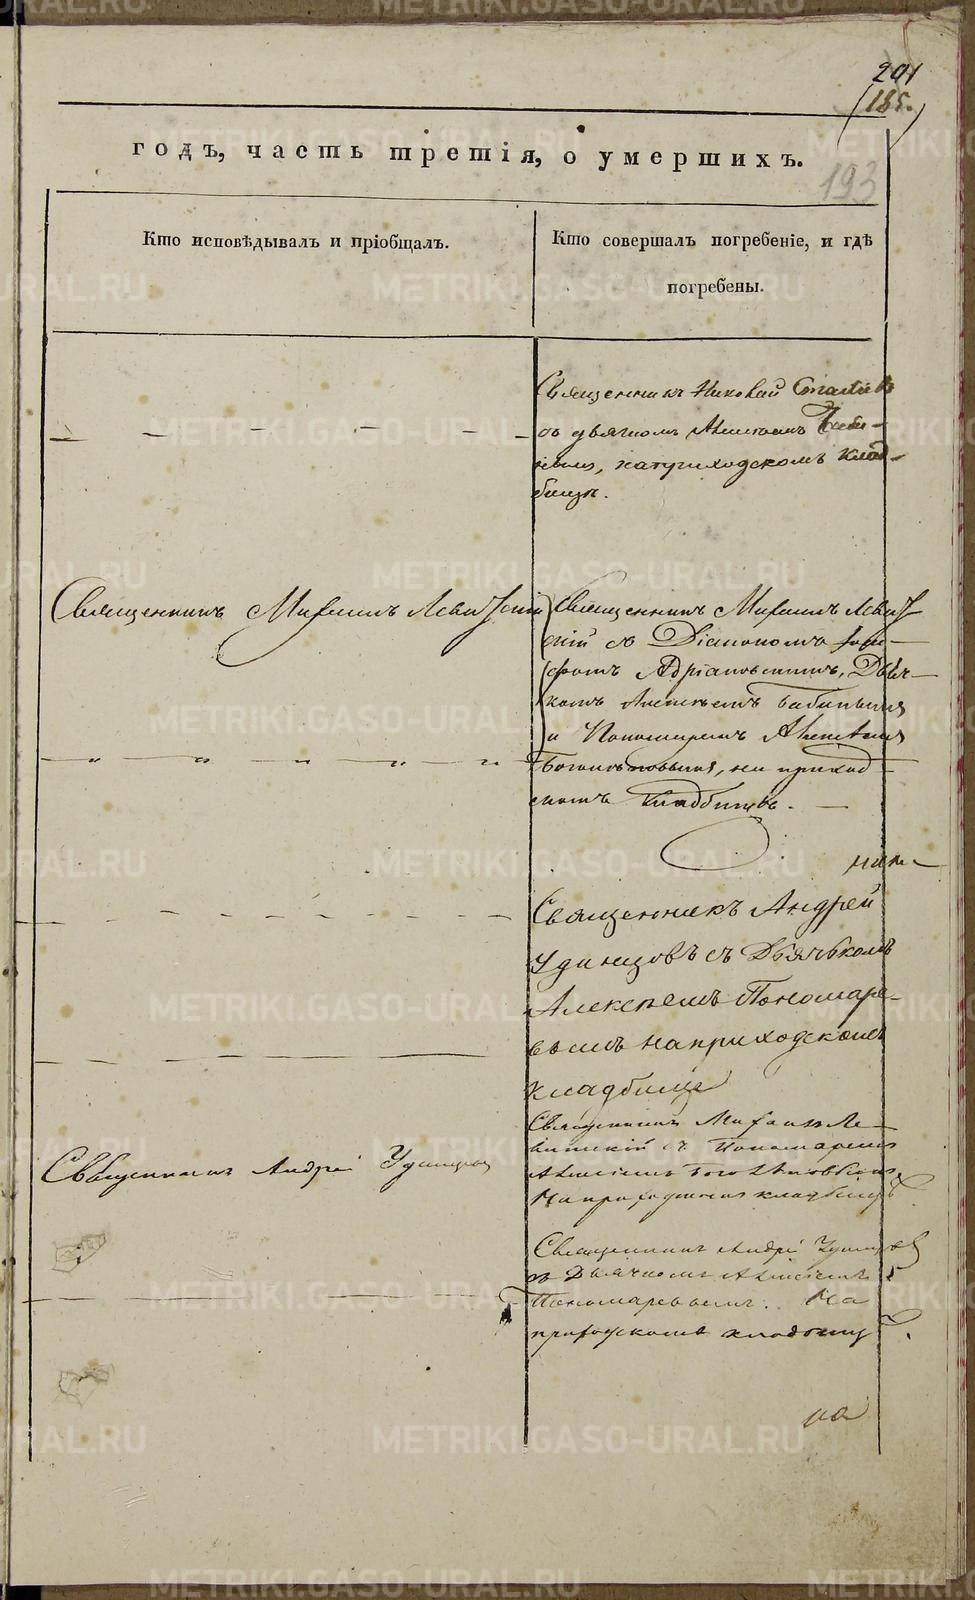 201
(185.)
193
годъ, часть третія, о умершихъ.
Кто исповѣдывалъ и пріобщалъ.
Кто совершалъ погребеніе, и гдѣ
погребены.
Священникъ Николай
съ дьячкомъ
на приходскомъ клад-
бищѣ.
Священникъ Михаилъ Левитскій
Священникъ Михаилъ Левит
скій съ Діакономъ Іоси-
фомъ Адріановскимъ, Дьяч-
комъ Алексѣемъ Бабинымъ
и Пономаремъ Алексѣемъ
Богомоловымъ, на приход-
скомъ кладбищѣ.
Священникъ Андрей
Удинцовъ съ Дьячькомъ
Алексѣемъ Пономаре-
вымъ на приходскомъ
кладбище
Священникъ Андрей Удинцовъ
Священникъ Михаилъ Ле-
витскій съ Пономаремъ
Алексѣемъ
На приходскомъ кладбищѣ
Священникъ Андрей Удинцовъ
съ Дьячкомъ Алексѣемъ
Пономаревымъ. На
приходскомъ кладбищѣ.
на
METRIKI.GASO-URAL.RU